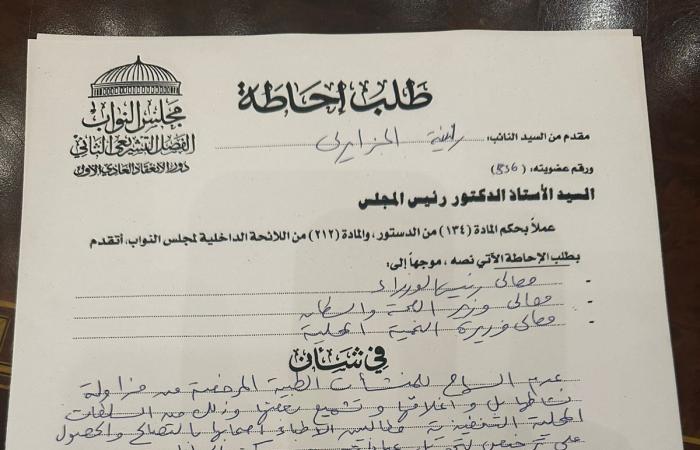 طلب إحاطة
مجلس النواب
الفصل التشريعى الثانى
دور الانعقاد العادى الأول
مقدم من السيد النائب: راوية الجزايرلى
ورقم عضويته: (536)
السيد الأستاذ الدكتور رئيس المجلس
عملاً بحكم المادة (١٣٤) من الدستور، والمادة (٢١٢) من اللائحة الداخلية لمجلس النواب، أتقدم
بطلب الإحاطة الآتي نصه، موجهاً إلى:
- معالى رئيس الوزراء
- معالى وزير الصحة والسكان
- معالى وزيرة التنمية المحلية
في شأن
عدم السماح للمنشآت الطبية المرخصة من مزاولة
نشاطها بل و اغلاقها و تشميع بعضها وذلك من السلطات
المحلية التنفيذية الأطباء أصحابها بالتصالح والحصول
على ترخيص